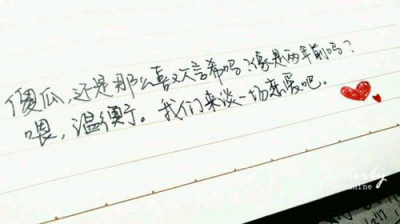 傻瓜,还是那么喜欢言希吗?像是两年前吗?
喂,温衡。我们来谈一场恋爱吧。